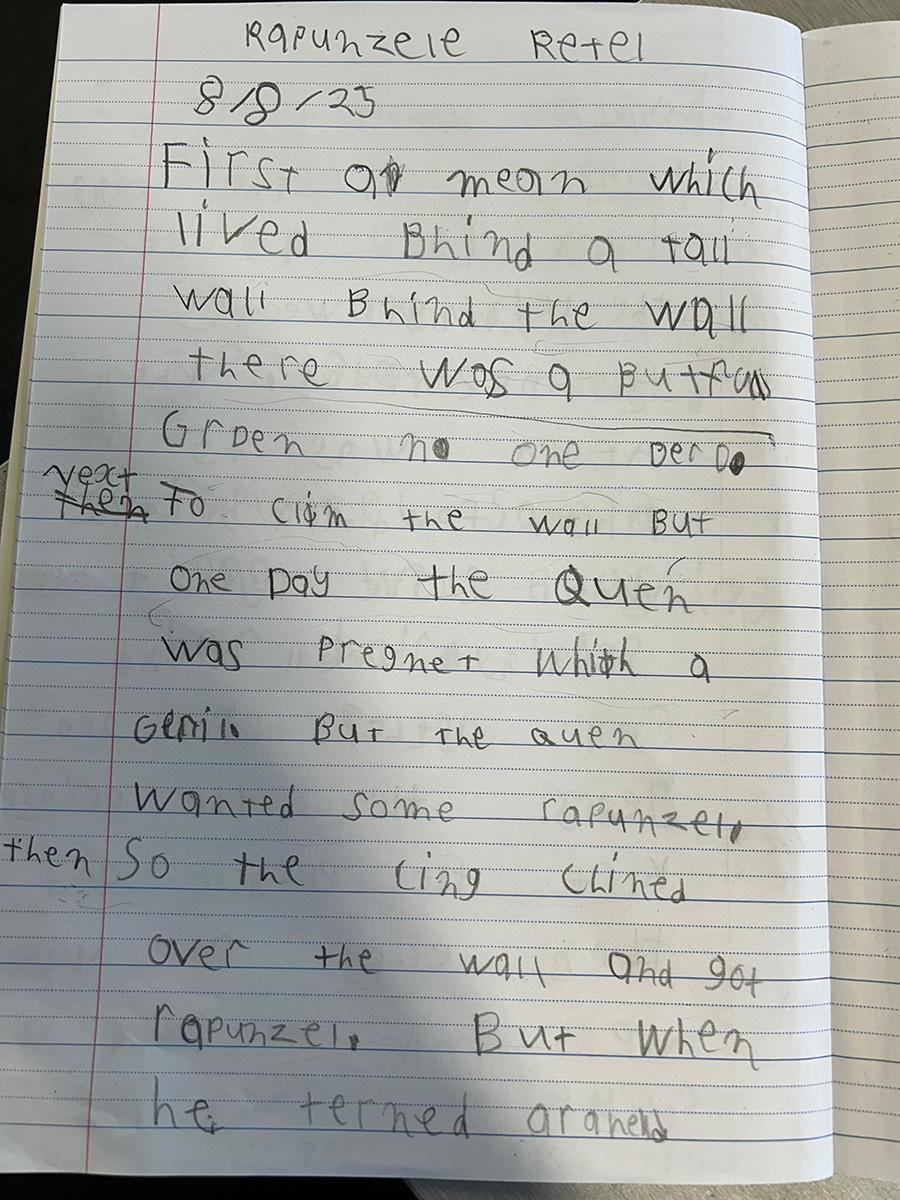 Rapunzele Retel
8/8/25
First a mean which
lived Bhind a tall
wall Bhind the wall
there was a
Groen no one
next
then To the wall But
one Day the Quen
was pregnet whith a
But the Quen
wanted some rapunzel.
then So the cing climed
over the wall and got
rapunzel. But when
he terned